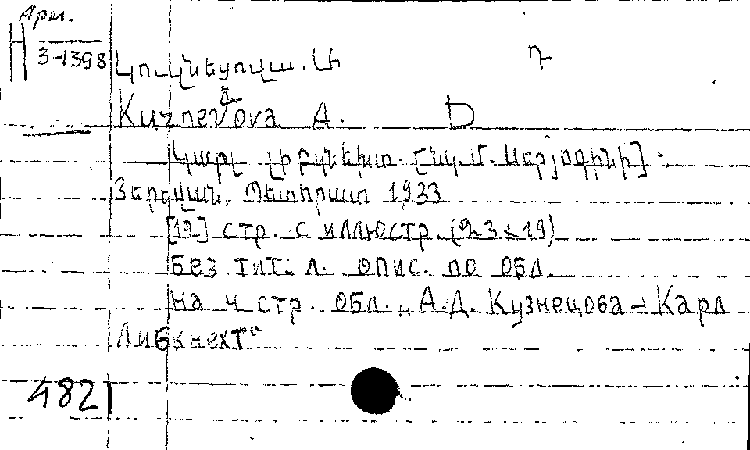 Арм.
H 3-1398
Կուզնեցովա. Ա Դ
Kuznecova A. D
Կարլ Լիբկնեխտ. [Նկ. Մ.
Յերևան, Պետհրատ 1933
[19] стр. с иллюстр. (23×19)
Без тит. л. опис. по обл.
На 4 стр. обл. „А.Д. Кузнецова – Карл
Либкнехт“
4821